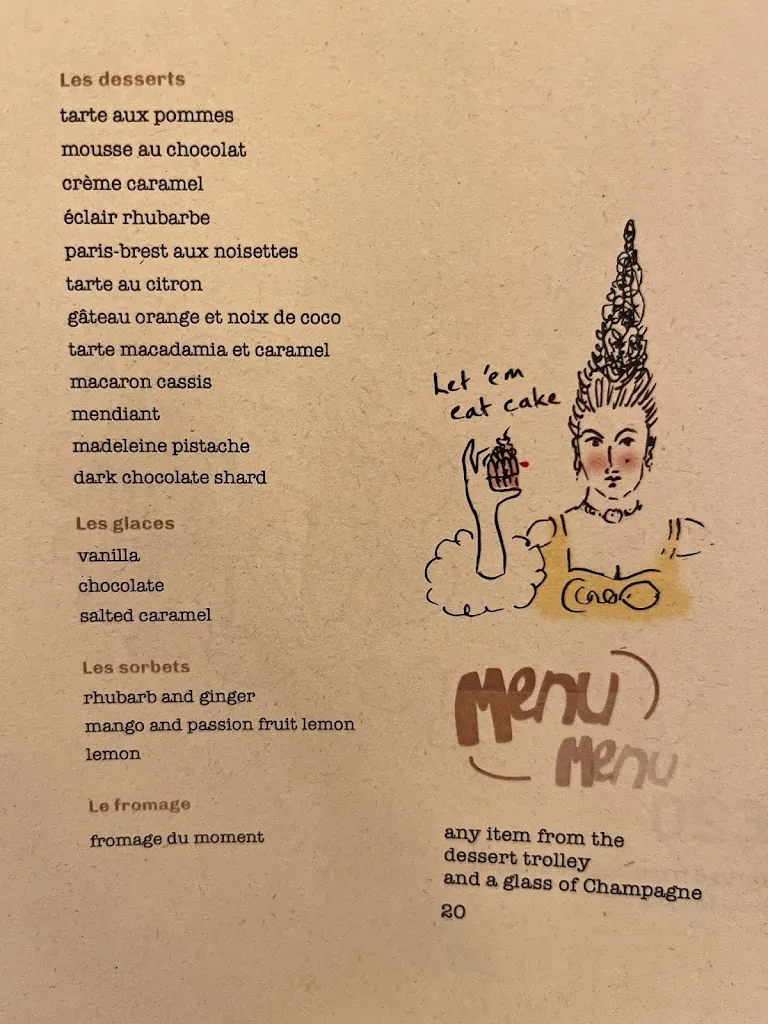 Les desserts
tarte aux pommes
mousse au chocolat
crème caramel
éclair rhubarbe
paris-brest aux noisettes
tarte au citron
gâteau orange et noix de coco
tarte macadamia et caramel
macaron cassis
mendiant
madeleine pistache
dark chocolate shard
Les glaces
vanilla
chocolate
salted caramel
Les sorbets
rhubarb and ginger
mango and passion fruit lemon
lemon
Le fromage
fromage du moment
Let 'em
eat cake
Menu
Menu
any item from the
dessert trolley
and a glass of Champagne
20